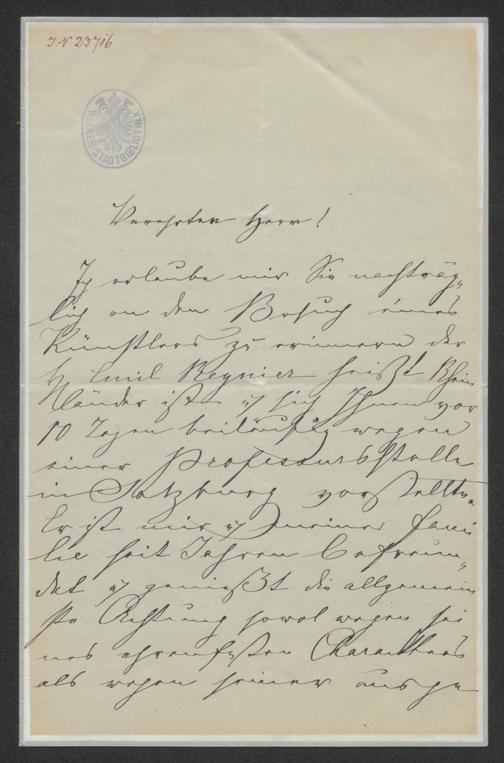 J.N. 23716
WIENER STADTBIBLIOTHEK
Verehrter Herr!
Ich erlaube mir Sie nachträg„
lich an den Besuch eines
Künstlers zu erinnern der
H Emil Regnier heißt Rhein
länder ist u sich Ihnen vor
10 Tagen beiläufig wegen
einer Professursstelle
in Salzburg vorstellte.
Er ist mir u meiner Fami
lie seit Jahren befreun„
det u genießt die allgemein
ste Achtung sowol wegen sei
nes ehrenfesten Charakters
als wegen seiner ausge